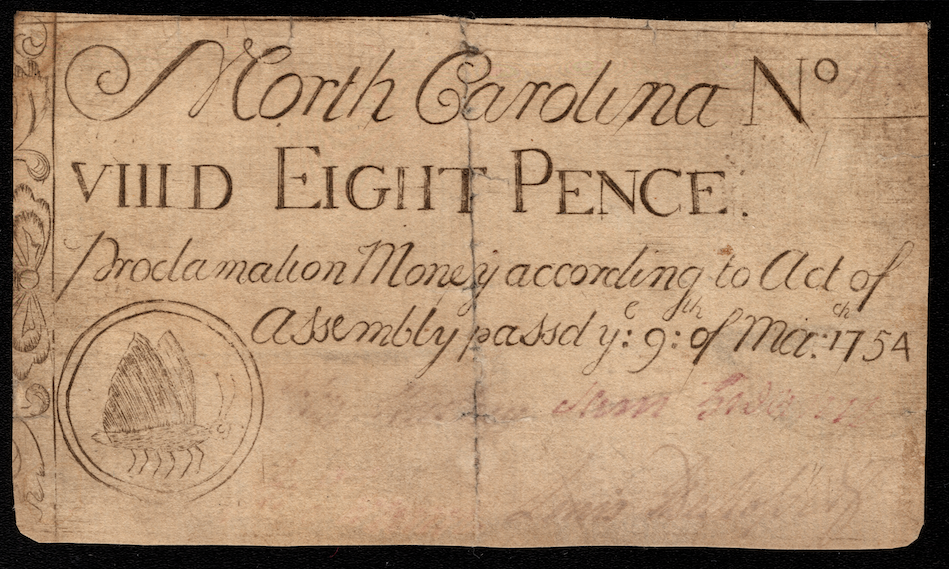 North Carolina Nº
VIII D EIGHT PENCE.
Proclamation Money according to Act of
Assembly passd yͤ: 9ͭͪ: of Mar:ͨͪ 1754
Sam
Lewis